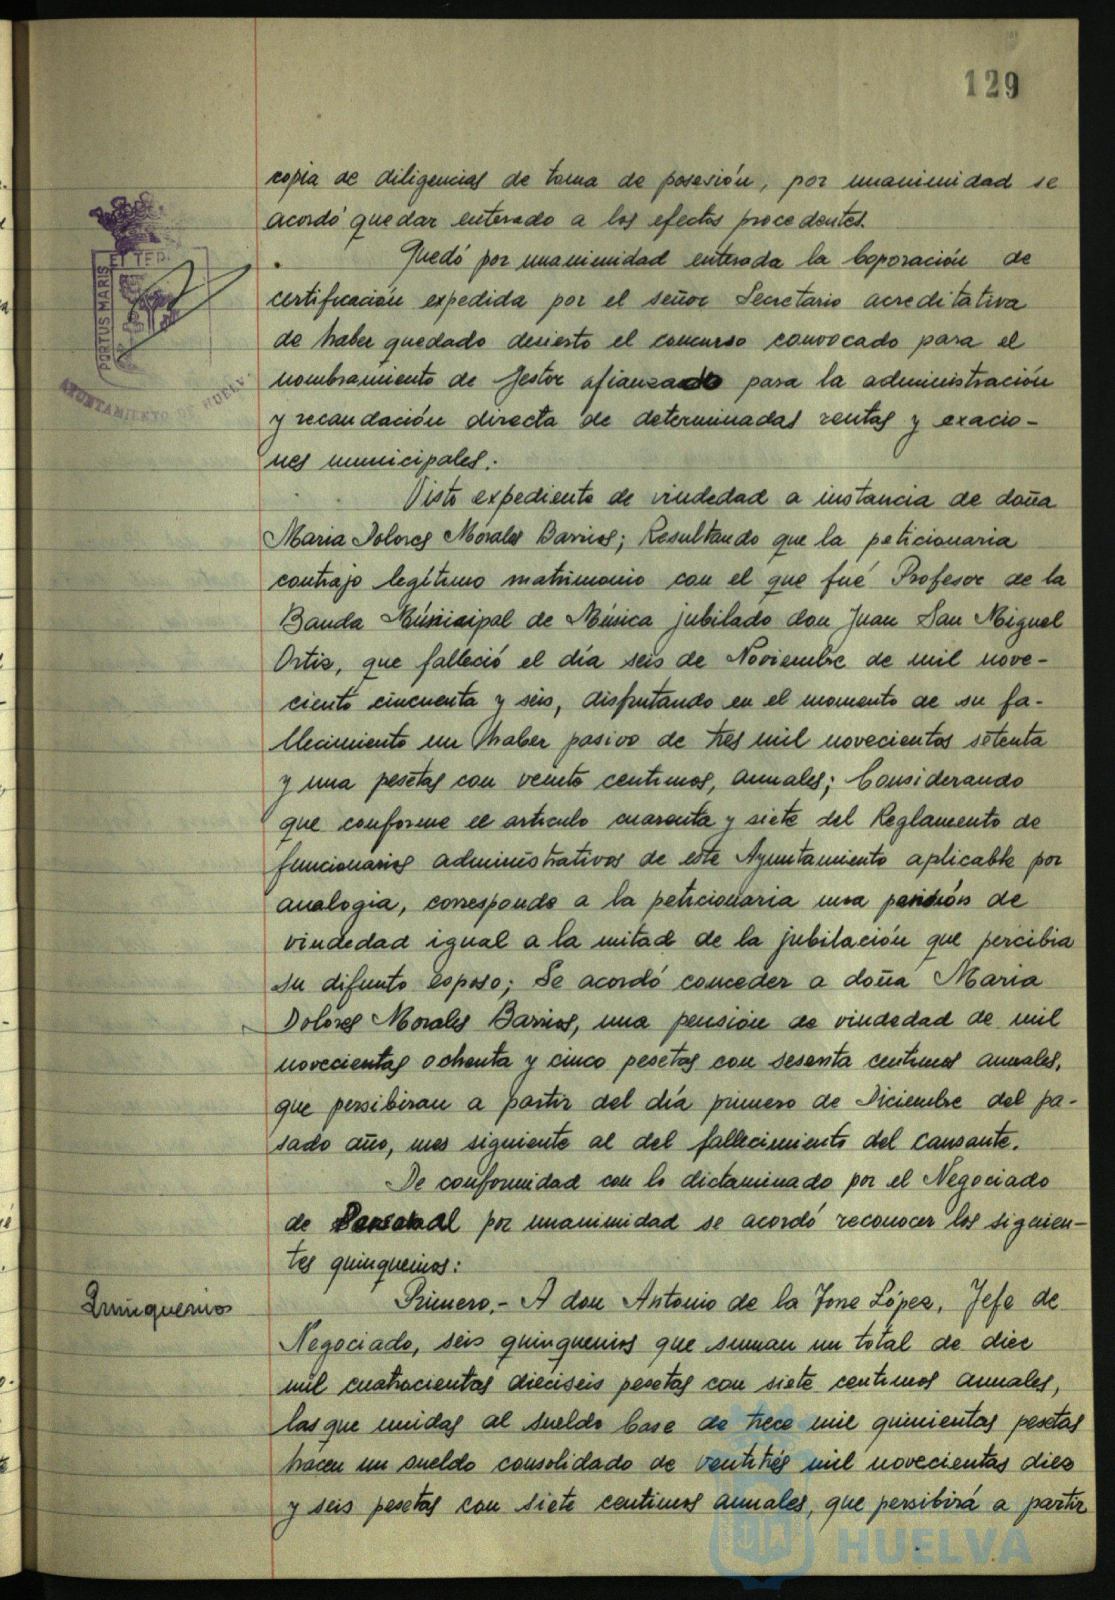 129
copia de diligencias de toma de posesión, por unanimidad se
acordó quedar enterado a los efectos procedentes.
Quedó por unanimidad enterada la Coporación de
certificación expedida por el señor Secretario acreditativa
de haber quedado desierto el concurso convocado para el
nombramiento de Gestor afianzado para la administración
y recaudación directa de determinadas rentas y exacio-
nes municipales.
Visto expediente de viudedad a instancia de doña
Maria Dolores Morales Barrios; Resultando que la peticionaria
contrajo legítimo matrimonio con el que fué Profesor de la
Banda Municipal de Música jubilado don Juan San Miguel
Ortiz, que falleció el día seis de Noviembre de mil nove-
ciento cincuenta y seis, disfrutando en el momento de su fa-
llecimiento un haber pasivo de tres mil novecientos setenta
y una pesetas con veinte centimos, anuales; Considerando
que conforme el articulo cuarenta y siete del Reglamento de
funcionarios administrativos de este Ayuntamiento aplicable por
analogia, corresponde a la peticionaria una pensión de
viudedad igual a la mitad de la jubilación que percibia
su difunto esposo; Se acordó conceder a doña Maria
Dolores Morales Barrios, una pensión de viudedad de mil
novecientas ochenta y cinco pesetas con sesenta centimos anuales,
que persibiran a partir del día primero de Diciembre del pa-
sado año, mes siguiente al del fallecimiento del causante.
De conformidad con lo dictaminado por el Negociado
de Personal por unanimidad se acordó reconocer los siguien-
tes quinquenios:
Quinquenios
Primero.- A don Antonio de la Torre López, Jefe de
Negociado, seis quinquenios que suman un total de diez
mil cuatrocientas dieciseis pesetas con siete centimos anuales,
las que unidas al sueldo base de trece mil quinientas pesetas
hacen un sueldo consolidado de ventitrés mil novecientas diez
y seis pesetas con siete centimos anuales, que persibirá a partir
PORTUS MARIS
ET TER
AYUNTAMIENTO DE HUELVA
HUELVA